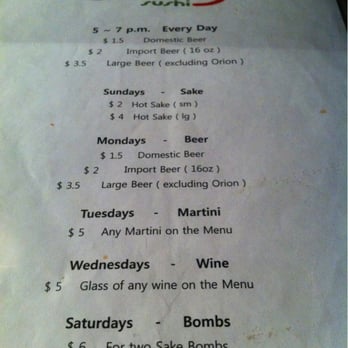 sushi
5 ~ 7 p.m. Every Day
$ 1.5 Domestic Beer
$ 2 Import Beer ( 16 oz )
$ 3.5 Large Beer ( excluding Orion )
Sundays - Sake
$ 2 Hot Sake ( sm )
$ 4 Hot Sake ( lg )
Mondays - Beer
$ 1.5 Domestic Beer
$ 2 Import Beer ( 16oz )
$ 3.5 Large Beer ( excluding Orion )
Tuesdays - Martini
$ 5 Any Martini on the Menu
Wednesdays - Wine
$ 5 Glass of any wine on the Menu
Saturdays - Bombs
$ 6 For two Sake Bombs